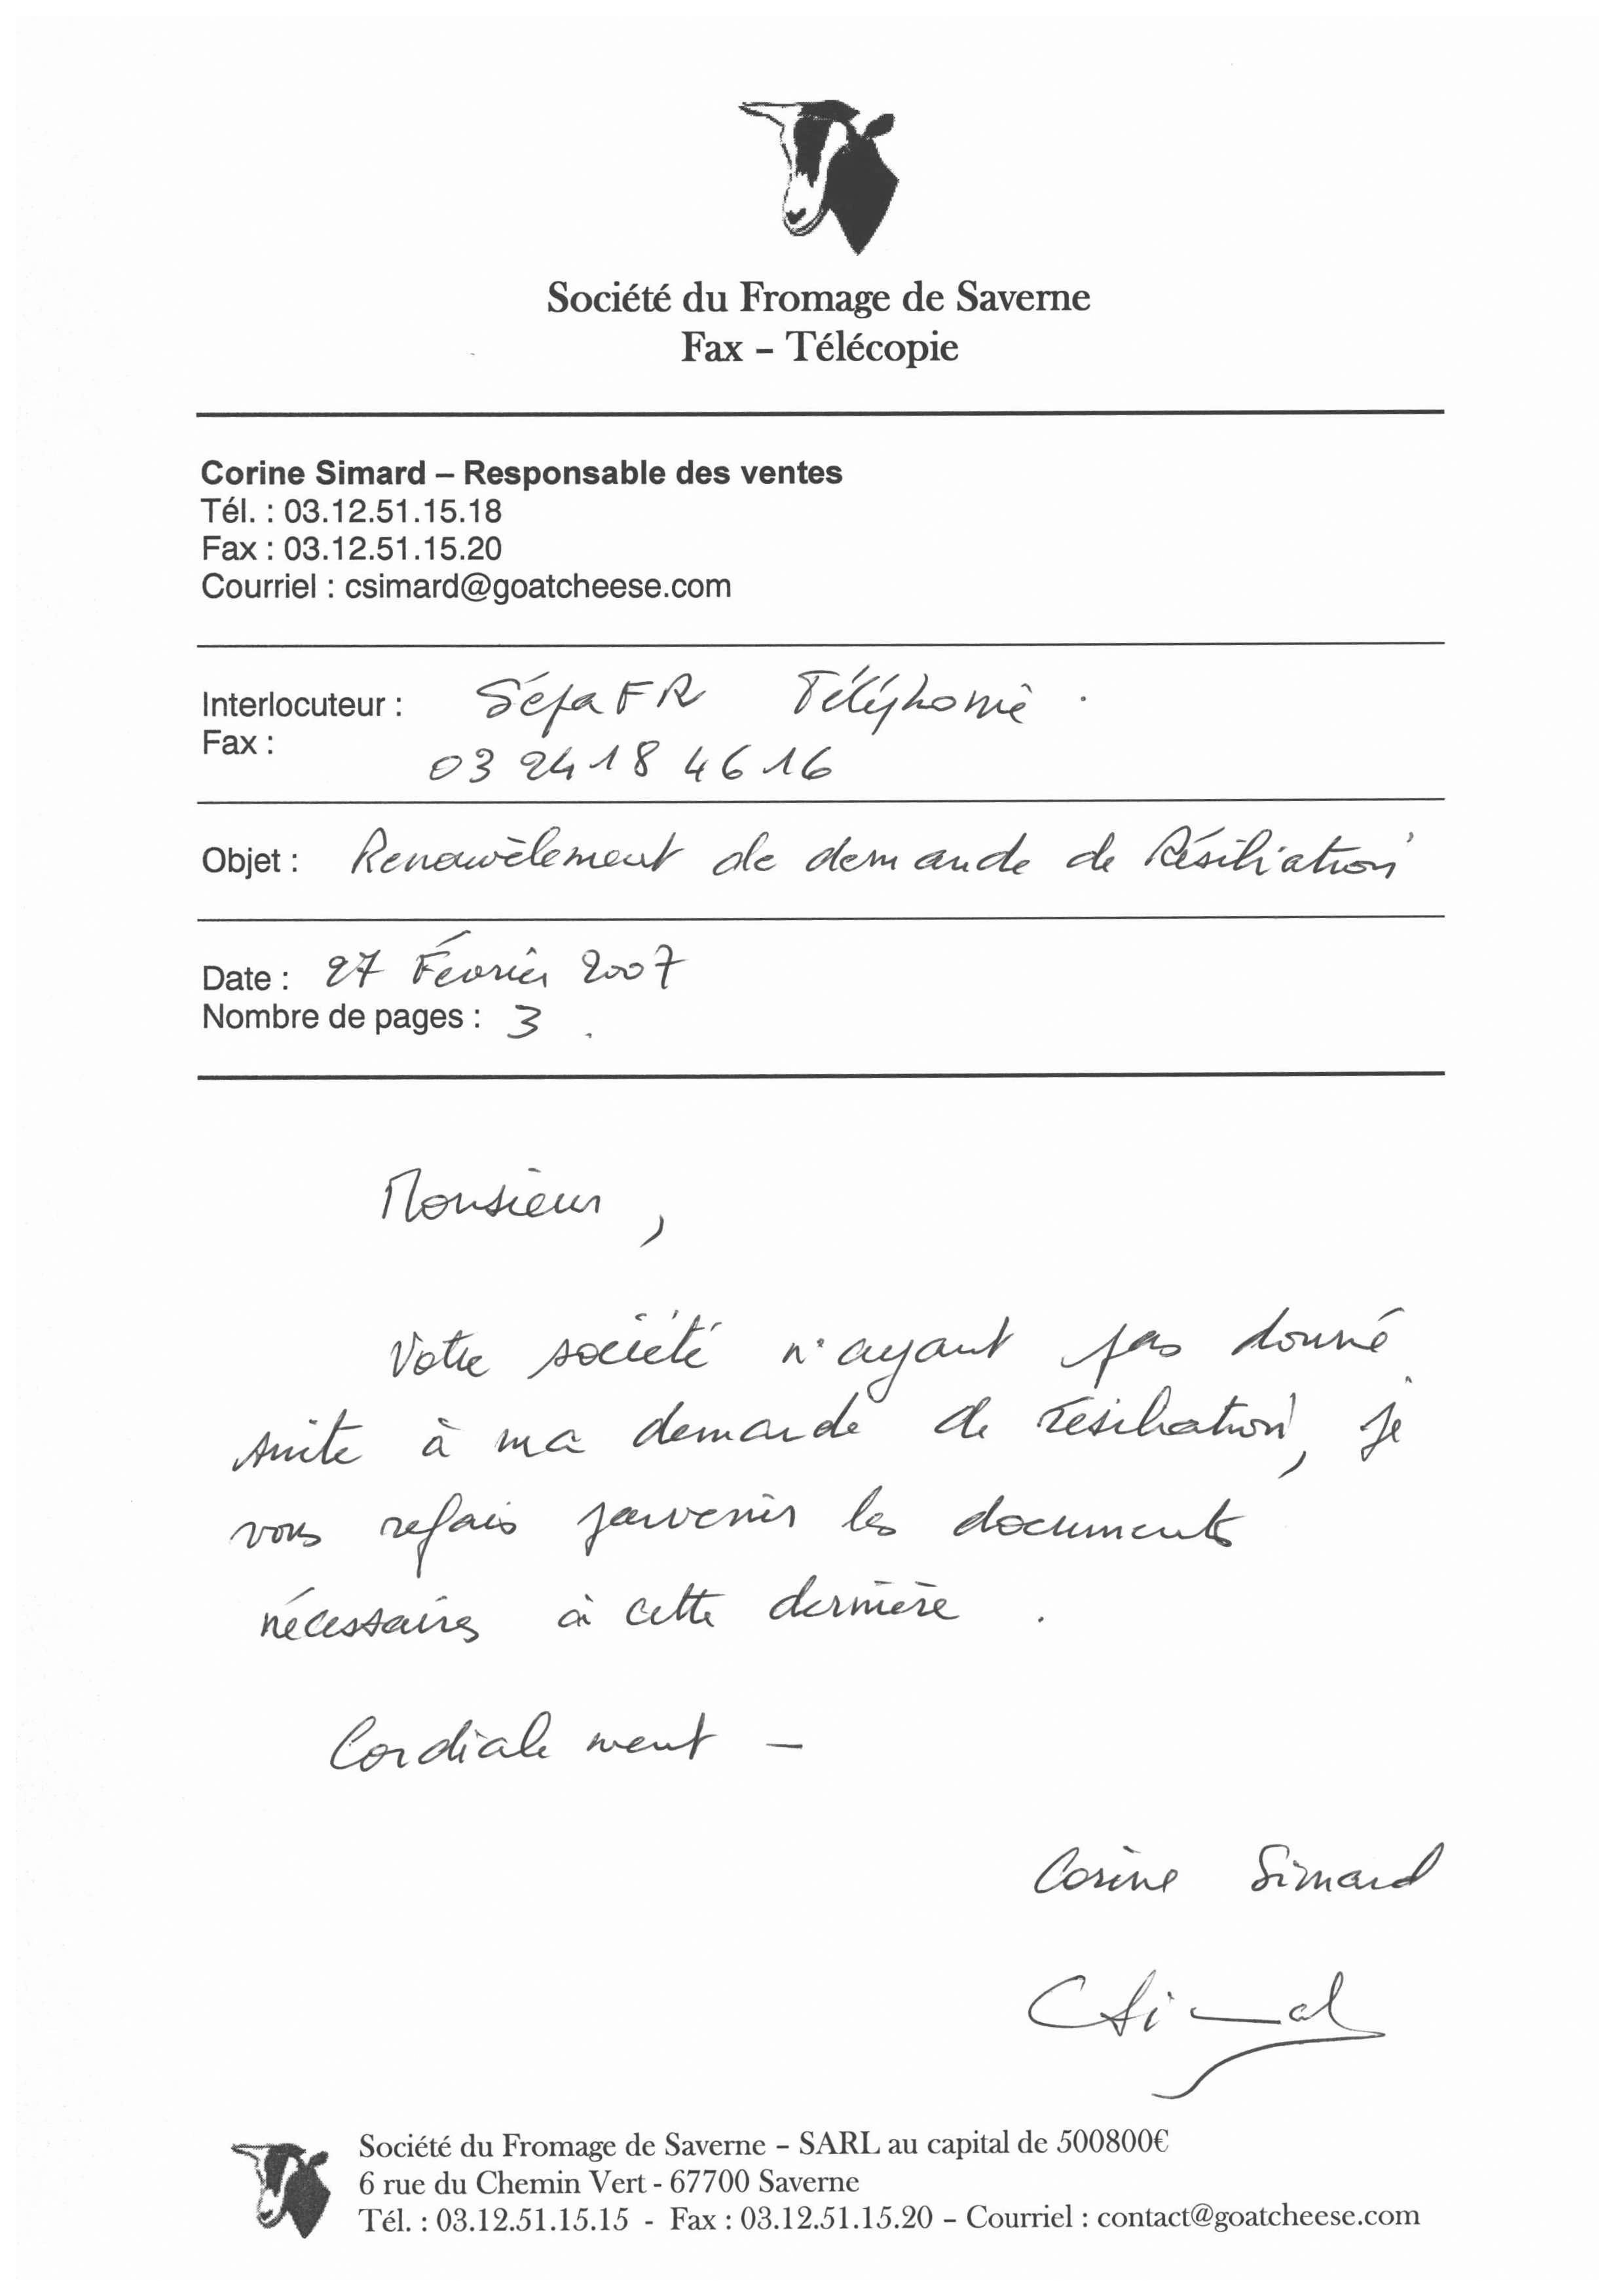 Société du Fromage de Saverne
Fax – Télécopie
Corine Simard – Responsable des ventes
Tél. : 03.12.51.15.18
Fax : 03.12.51.15.20
Courriel : csimard@goatcheese.com
Interlocuteur : SéfaFR Téléphonie.
Fax : 03 24 18 46 16
Objet : Renouvèlement de demande de Résiliation
Date : 27 Février 2007
Nombre de pages : 3.
Monsieur,
Votre société n'ayant pas donné
suite à ma demande de résiliation, je
vous refais parvenir les documents
nécessaires à cette dernière.
Cordialement –
Corine Simard
CSimard
Société du Fromage de Saverne – SARL au capital de 500800€
6 rue du Chemin Vert - 67700 Saverne
Tél. : 03.12.51.15.15 - Fax : 03.12.51.15.20 – Courriel : contact@goatcheese.com